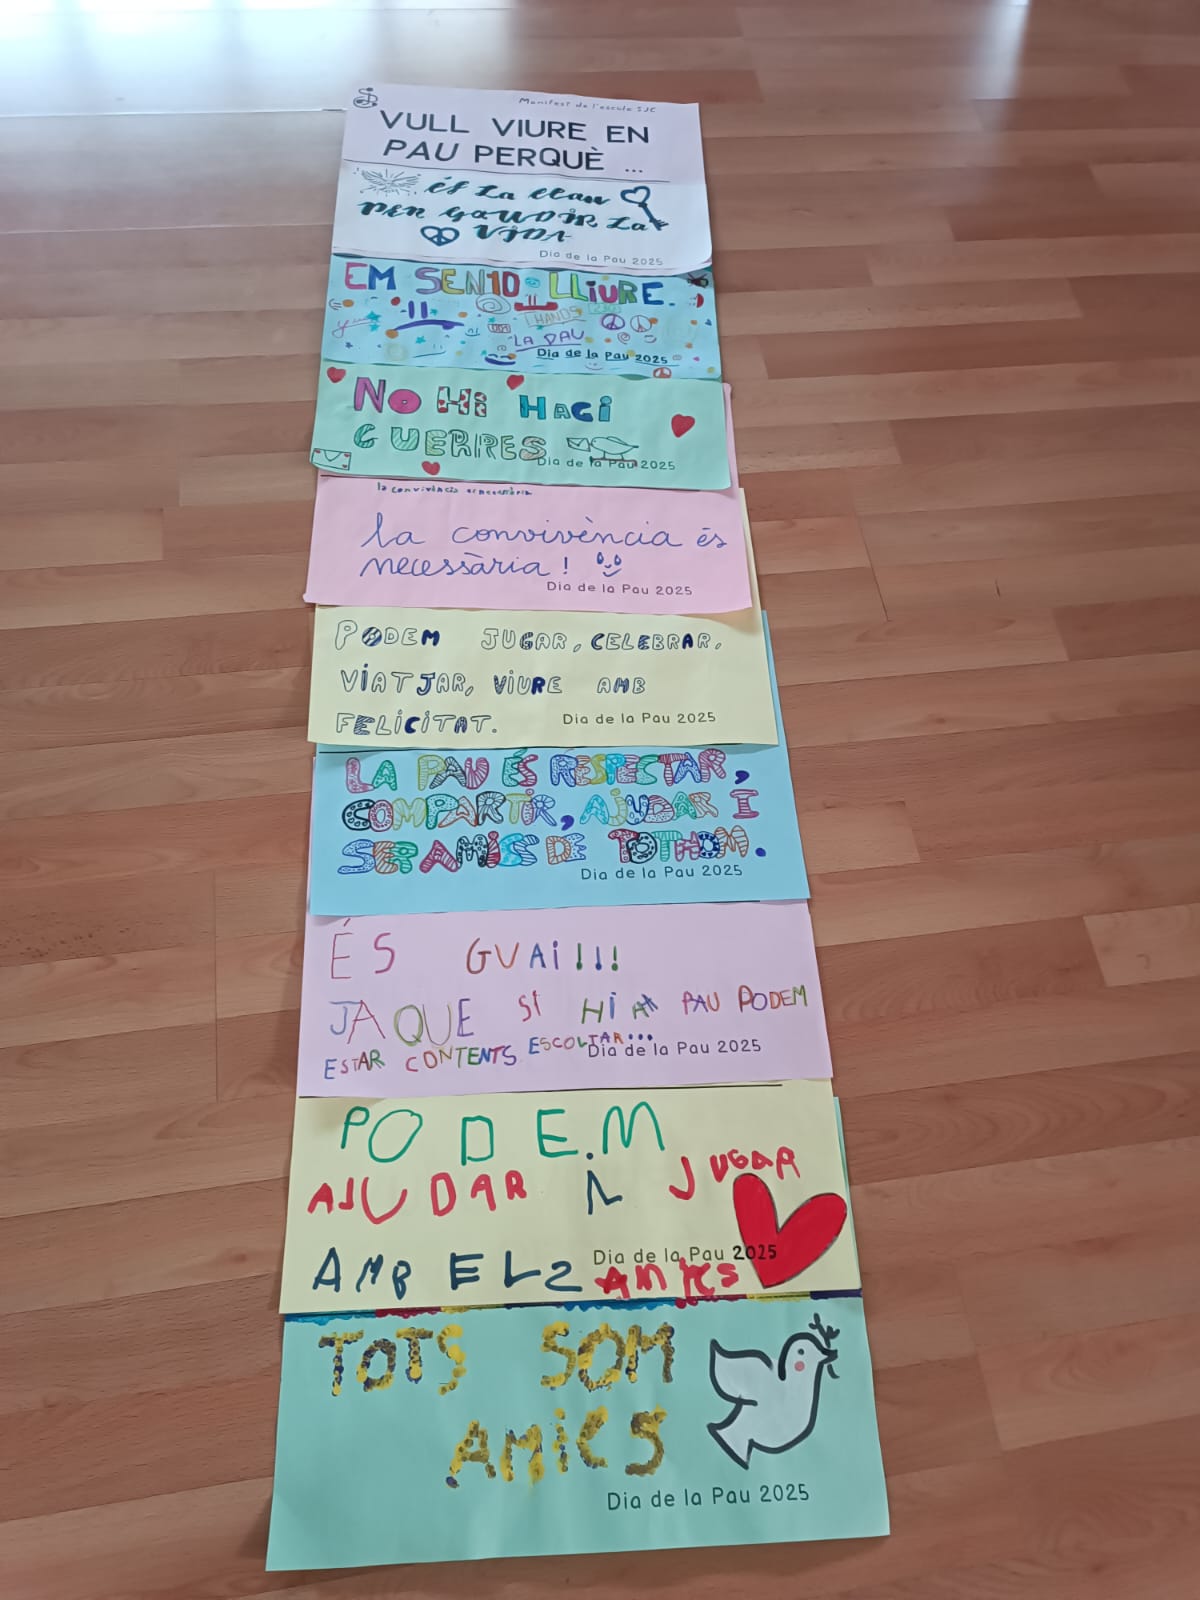 Manifest de l'escola SJC
VULL VIURE EN
PAU PERQUÈ ...
ÉS La clau
PER GAUDIR La
VIDA
Dia de la Pau 2025
EM SENTO LLIURE.
LA PAU
Dia de la Pau 2025
NO HI HAGI
GUERRES
Dia de la Pau 2025
la convivència és necessària
la convivència és
necessària!
Dia de la Pau 2025
PODEM JUGAR, CELEBRAR,
VIATJAR, VIURE AMB
FELICITAT.
Dia de la Pau 2025
LA PAU ÉS RESPECTAR,
COMPARTIR, AJUDAR I
SER AMICS DE TOTHOM.
Dia de la Pau 2025
ÉS GUAI!!!
JA QUE SI HI HA PAU PODEM
ESTAR CONTENTS ESCOLTAR...
Dia de la Pau 2025
PODEM
AJUDAR i JUGAR
AMB ELS AMICS
Dia de la Pau 2025
TOTS SOM
AMICS
Dia de la Pau 2025